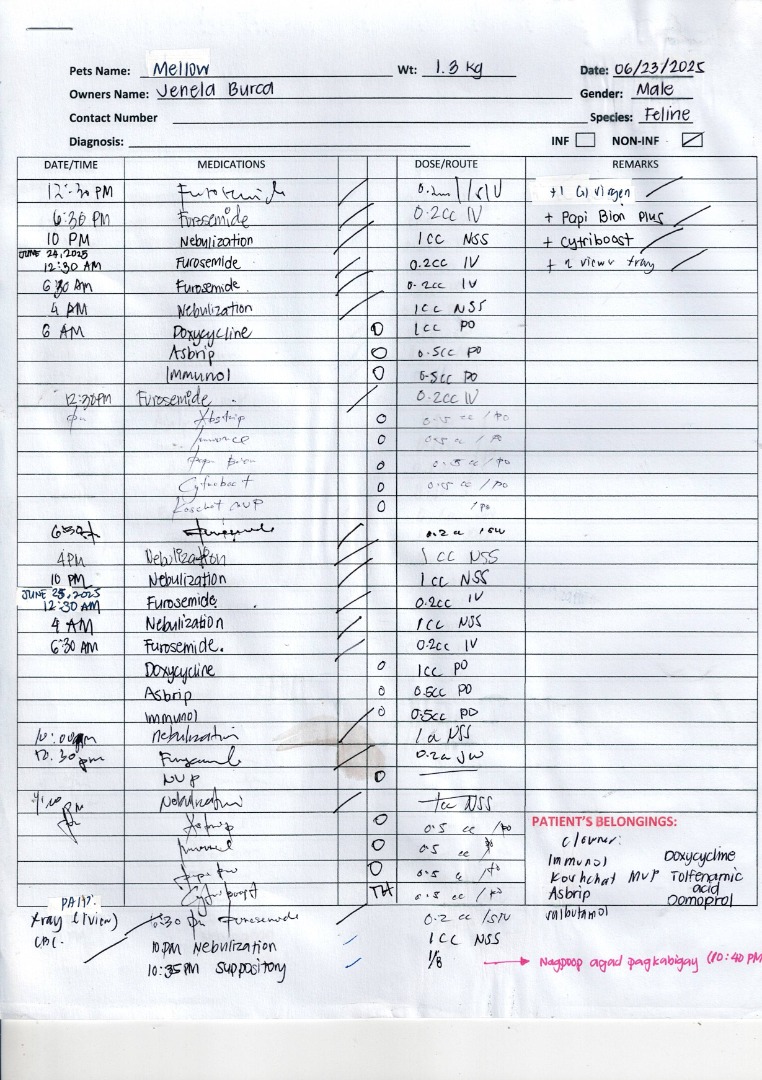 Pets Name: Mellow Wt: 1.3 kg Date: 06/23/2025
Owners Name: Jenela Burca Gender: Male
Contact Number Species: Feline
Diagnosis: INF NON-INF
DATE/TIME MEDICATIONS DOSE/ROUTE REMARKS
12:30 PM Furosemide
6:30 PM Furosemide 0.2cc IV + Papi Bion Plus
10 PM Nebulization 1cc NSS + Cytriboost
JUNE 24, 2025
12:30 AM Furosemide 0.2cc IV
6:30 AM Furosemide 0.2cc IV
4 AM Nebulization 1cc NSS
6 AM Doxycycline 1cc PO
Asbrip 0.5cc PO
Immunol 0.5cc PO
12:30PM Furosemide 0.2cc IV
Asbrip 0.5 cc / po
0.5 cc / po
Papi Bion 0.5 cc / po
Cytriboost 0.5 cc / po
MVP / po
6:30
4PM Nebulization 1 cc NSS
10 PM Nebulization 1cc NSS
JUNE 25, 2025
12:30 AM Furosemide 0.2cc IV
4 AM Nebulization 1cc NSS
6:30 AM Furosemide 0.2cc IV
Doxycycline 1cc PO
Asbrip 0.5cc PO
Immunol 0.5cc PO
10:00 am nebulization NSS
12:30 pm Furosemide
MVP
Nebulization 1cc NSS
0.5 cc / po
0.5 cc
0.5 cc / po
Cytriboost 0.5 cc / po
PATIENT'S BELONGINGS:
c/owner:
Immunol Doxycycline
Koshchat MVP Tolfenamic acid
Asbrip Domoprol
salbutamol
PAID:
xray (1view) 6:30 pm Furosemide 0.2 cc
CBC. 10PM Nebulization 1CC NSS
10:35PM Suppository 1/8 → Nagpoop agad pagkabigay (10:40 PM